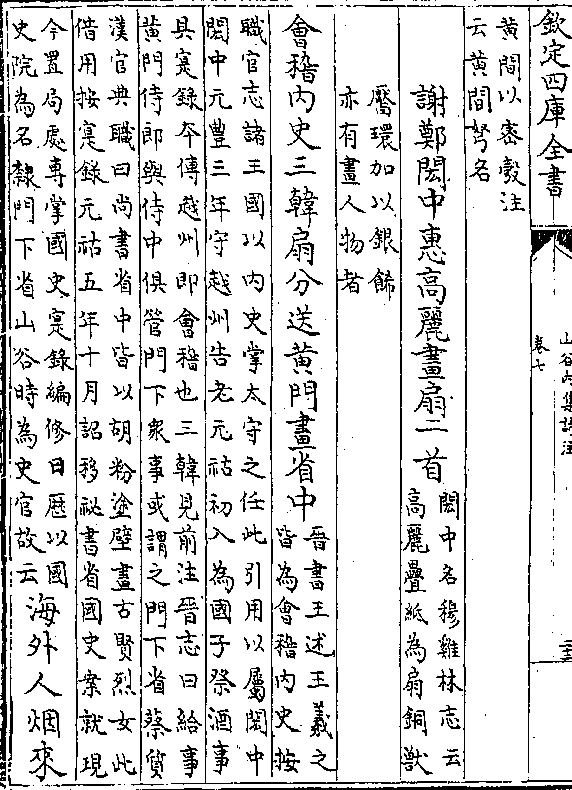 欽定四庫全書
山谷内集詩注
卷七
黃間以密轂注
云黃間弩名
謝鄭閎中惠高麗畫扇二首
閎中名穆雞林志云
高麗疊紙為扇銅獸
靨環加以銀餙
亦有畫人物者
會稽内史三韓扇分送黃門畫省中
晉書王述王羲之
皆為會稽内史按
職官志諸王國以内史掌太守之任此引用以屬閎中
閎中元豐三年守越州告老元祐初入為國子祭酒事
具寔錄夲傳越州即會稽也三韓見前注晉志曰給事
黃門侍郎與侍中俱管門下衆事或謂之門下省蔡質
漢官典職曰尚書省中皆以胡粉塗壁畫古賢烈女此
借用按寔錄元祐五年十月詔移祕書省國史案就現
今置局處專掌國史寔錄編修日厯以國
史院為名隸門下省山谷時為史官故云
海外人烟來